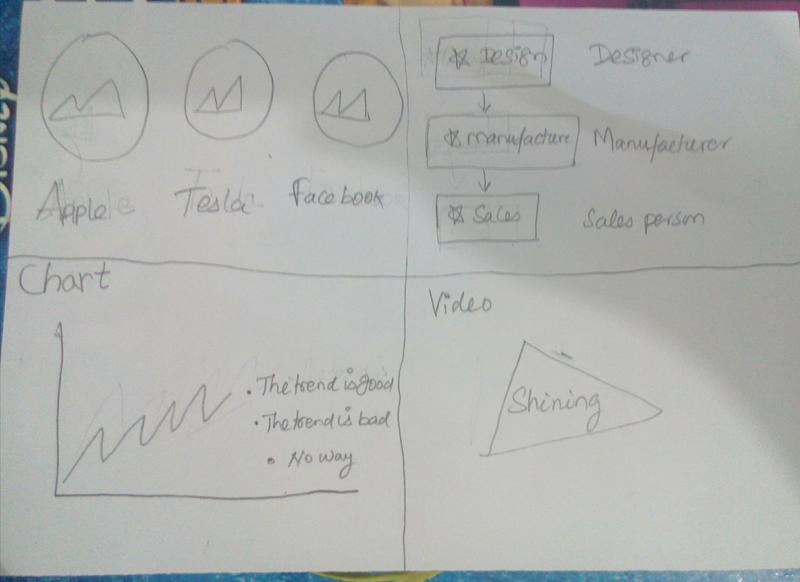 Apple
Tesla
facebook
Design
Designer
manufacture
Manufacturer
Sales
Sales person
Chart
The trend is good
The trend is bad
No way
Video
Shining
DISNEY